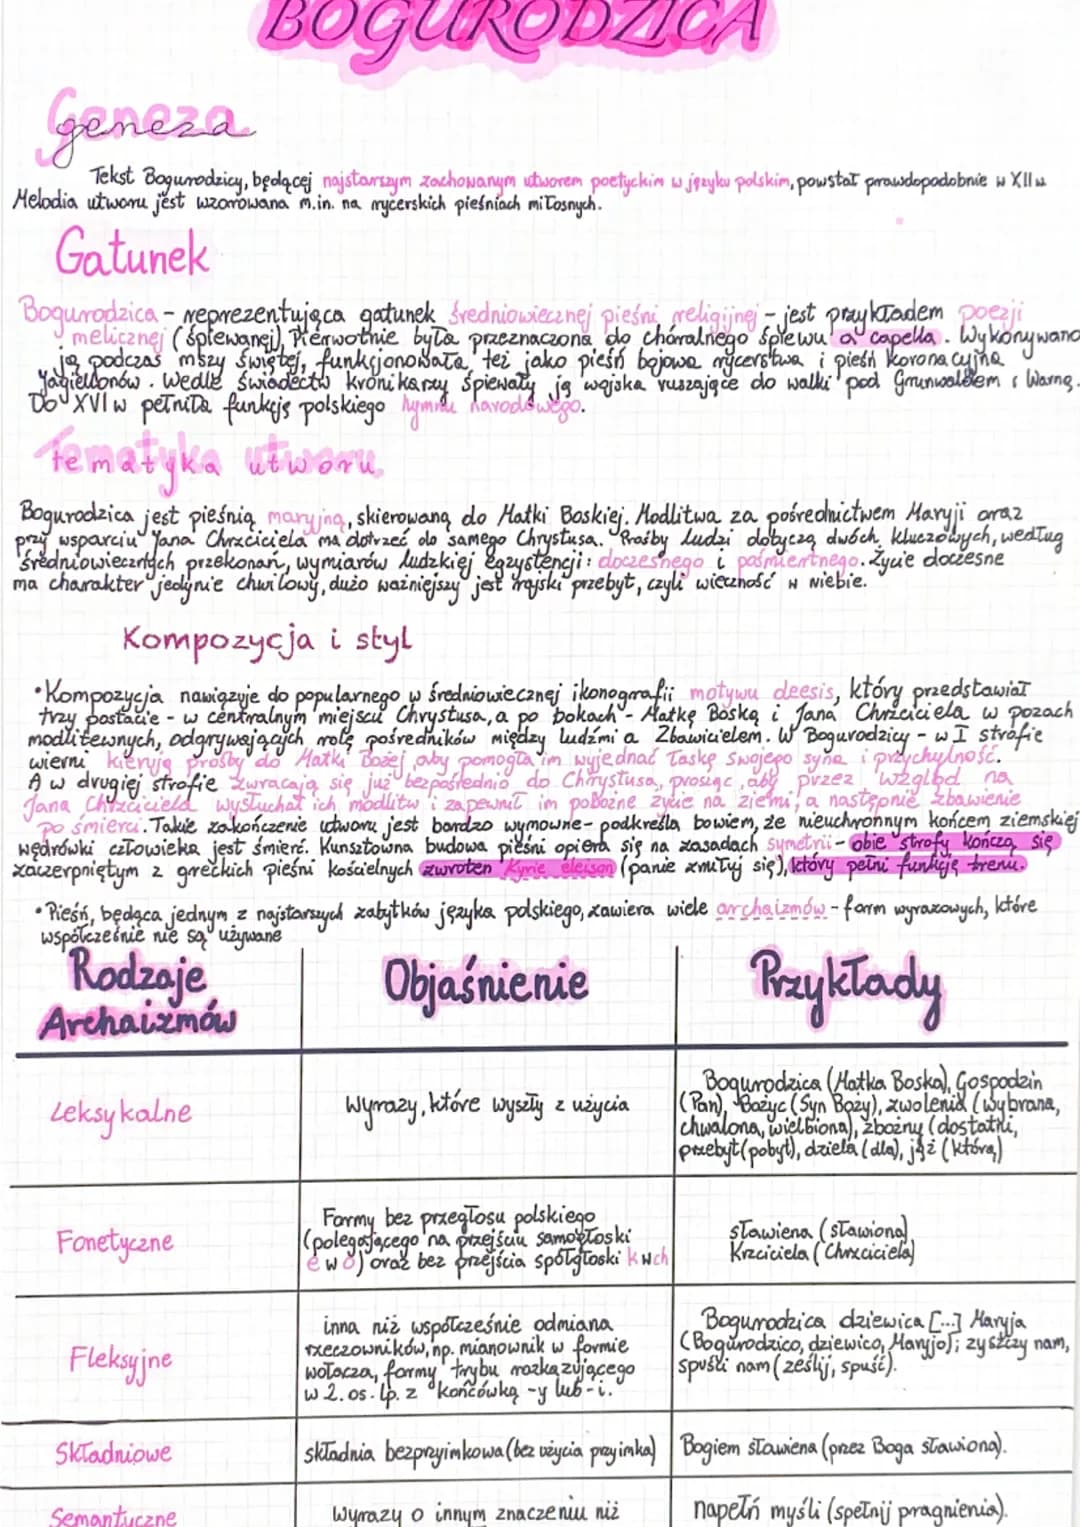 BOGURODZICA
Geneza
geneza
Tekst Bogurodzicy, będącej najstarszym zachowanym utworem poetyckim w języku polskim, powstał prawdopodobnie w XII w
Melodia utworu jest wzorowana m.in. na rycerskich pieśniach miłosnych.
Gatunek
Bogurodzica - reprezentująca gatunek średniowiecznej pieśni religijnej - jest przykładem poezji
melicznej (śpiewanej). Pierwotnie była przeznaczona do chóralnego śpiewu a capella. Wykonywano
ją podczas mszy świętej, funkcjonowała też jako pieśń bojowa rycerstwa i pieśń koronacyjna
Jagiellonów. Wedle świadectw kronikarzy śpiewały ją wojska ruszające do walki pod Grunwaldem i Warną.
Do XVI w pełniła funkcję polskiego hymnu narodowego.
Tematyka utworu
Bogurodzica jest pieśnią maryjną, skierowaną do Matki Boskiej. Modlitwa za pośrednictwem Maryji oraz
przy wsparciu Jana Chrzciciela ma dotrzeć do samego Chrystusa. Prośby ludzi dotyczą dwóch kluczowych, według
średniowiecznych przekonań, wymiarów ludzkiej egzystencji: doczesnego i pośmiertnego. Życie doczesne
ma charakter jedynie chwilowy, dużo ważniejszy jest rajski przebyt, czyli wieczność w niebie.
Kompozycja i styl
•Kompozycja nawiązuje do popularnego w średniowiecznej ikonografii motywu deesis, który przedstawiał
trzy postacie - w centralnym miejscu Chrystusa, a po bokach - Matkę Boską i Jana Chrzciciela w pozach
modlitewnych, odgrywających rolę pośredników między ludźmi a Zbawicielem. W Bogurodzicy - w I strofie
wierni kierują prośby do Matki Bożej, aby pomogła im wyjednać łaskę swojego syna i przychylność.
A w drugiej strofie zwracają się już bezpośrednio do Chrystusa, prosząc, aby przez wzgląd na
Jana Chrzciciela wysłuchał ich modlitw i zapewnił im pobożne życie na ziemi, a następnie zbawienie
po śmierci. Takie zakończenie utworu jest bardzo wymowne - podkreśla bowiem, że nieuchronnym końcem ziemskiej
wędrówki człowieka jest śmierć. Kunsztowna budowa pieśni opiera się na zasadach symetrii - obie strofy kończą się
zaczerpniętym z greckich pieśni kościelnych zwrotem Kyrie eleison (panie zmiłuj się), który pełni funkcję trenu.
•Pieśń, będąca jednym z najstarszych zabytków języka polskiego, zawiera wiele archaizmów - form wyrazowych, które
współcześnie nie są używane
Rodzaje Archaizmów
Objaśnienie
Przykłady
Leksykalne
Wyrazy, które wyszły z użycia
Bogurodzica (Matka Boska), Gospodzin
(Pan), Bożyc (Syn Boży), zwolena (wybrana,
chwalona, wielbiona), zbożny (dostatni,
przebyt (pobyt), dziela (dla), jąż (którą)
Fonetyczne
Formy bez przegłosu polskiego
(polegającego na przejściu samogłoski
e w o) oraz bez przejścia spółgłoski k w ch
sławiena (sławiona)
Krzciciela (Chrzciciela)
Fleksyjne
inna niż współcześnie odmiana
rzeczowników, np. mianownik w formie
wołacza, formy trybu rozkazującego
w 2. os. lp. z końcówką -y lub -i.
Bogurodzica dziewica [...] Maryja
(Bogurodzico, dziewico, Maryjo); zyszczy nam,
spuści nam (ześlij, spuść).
Składniowe
składnia bezprzyimkowa (bez użycia przyimka)
Bogiem sławiena (przez Boga sławiona).
Semantyczne
Wyrazy o innym znaczeniu niż
napełń myśli (spełnij pragnienia).